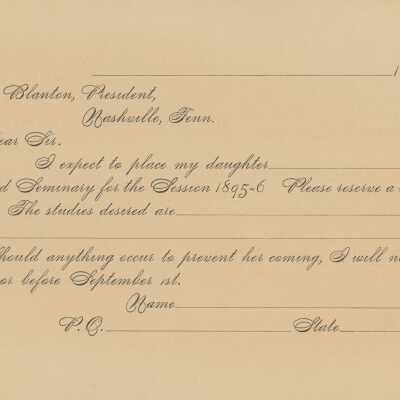 1
Blanton, President,
Nashville, Tenn.
ear Sir.
I expect to place my daughter
d Seminary for the Session 1895-6 Please reserve a
The studies desired are
hould anything occur to prevent her coming, I will n
or before September 1st.
Name
P.O. State